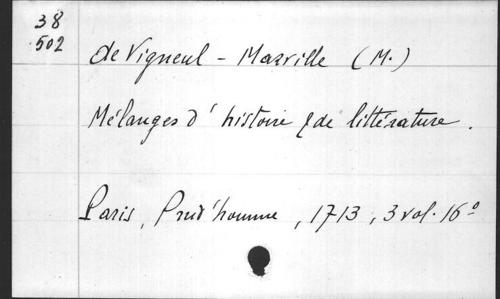 38
502
de Vigneul - Marville (M.)
Mélanges d'histoire & de littérature.
Paris, Prud'homme, 1713, 3 vol. 16°